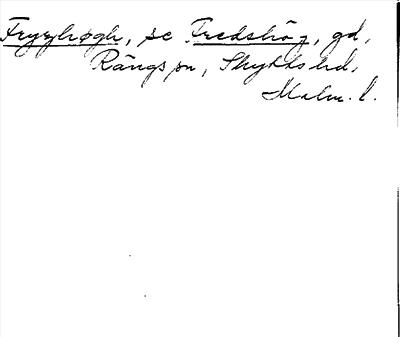 Fryzhøgh, se Fredshög, gd,
Rängs sn, Skytts hd,
Malm. l.